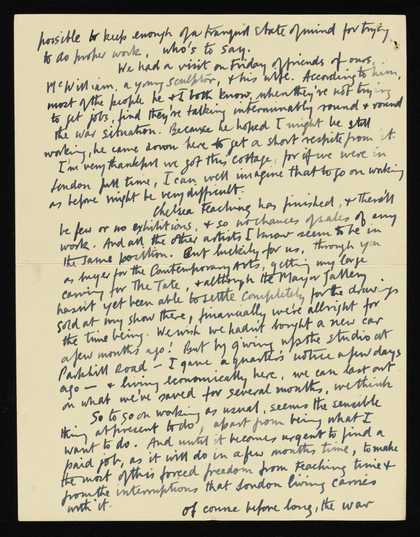 possible to keep enough of a tranquil state of mind for trying
to do proper work, who's to say.
We had a visit on Friday of friends of ours,
McWilliam, a young sculptor, & his wife. According to him,
most of the people he & I both know, when they're not trying
to get jobs, find they're talking interminably round & round
the war situation. Because he hoped I might be still
working, he came down here to get a short respite from it.
I'm very thankful we got this cottage, for if we were in
London full time, I can well imagine that to go on working
as before might be very difficult.
Chelsea teaching has finished, & there'll
be few or no exhibitions, & so no chances of sales of any
work. And all the other artists I know seem to be in
the same position. But luckily for us, through you
as buyer for the Contemporary Arts, getting my large
carving for The Tate, & although the Mayor Gallery
hasn't yet been able to settle completely for the drawings
sold at my show there, financially we're allright for
the time being. We wish we hadn't bought a new car
a few months ago! But by giving up the studio at
Parkhill Road – I gave a quarter's notice a few days
ago – & living economically here, we can last out
on what we've saved for several months, we think.
So to go on working as usual, seems the sensible
thing at present to do, apart from being what I
want to do. And until it becomes urgent to find a
paid job, as it will do in a few months time, to make
the most of this forced freedom from teaching time &
from the interruptions that London living carries
with it.
Of course before long, the war